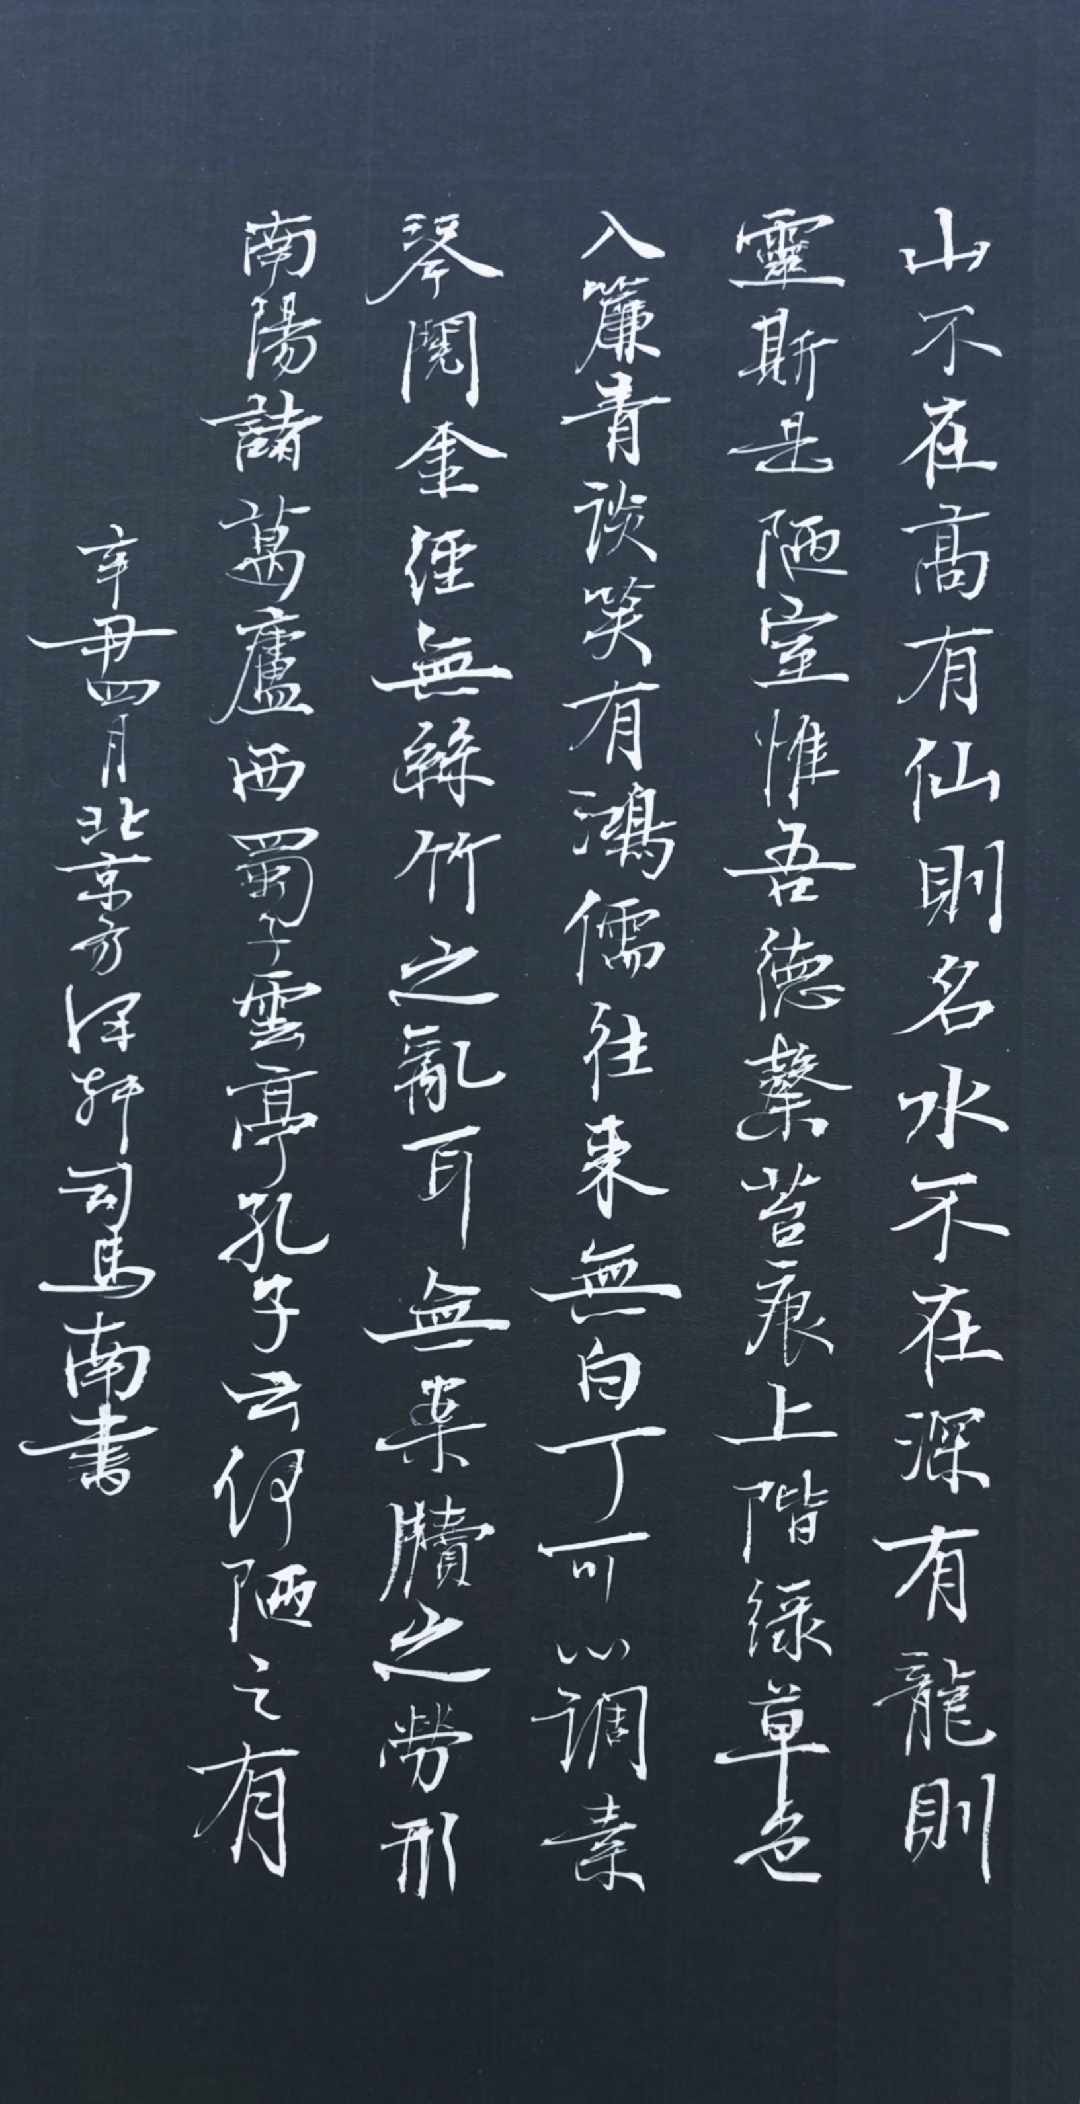 山不在高有仙則名水不在深有龍則
靈斯是陋室惟吾德馨苔痕上階綠草色
入簾青談笑有鴻儒往來無白丁可以調素
琴閱金經無絲竹之亂耳無案牘之勞形
南陽諸葛廬西蜀子雲亭孔子云何陋之有
辛丑四月北京方澤軒司馬南書